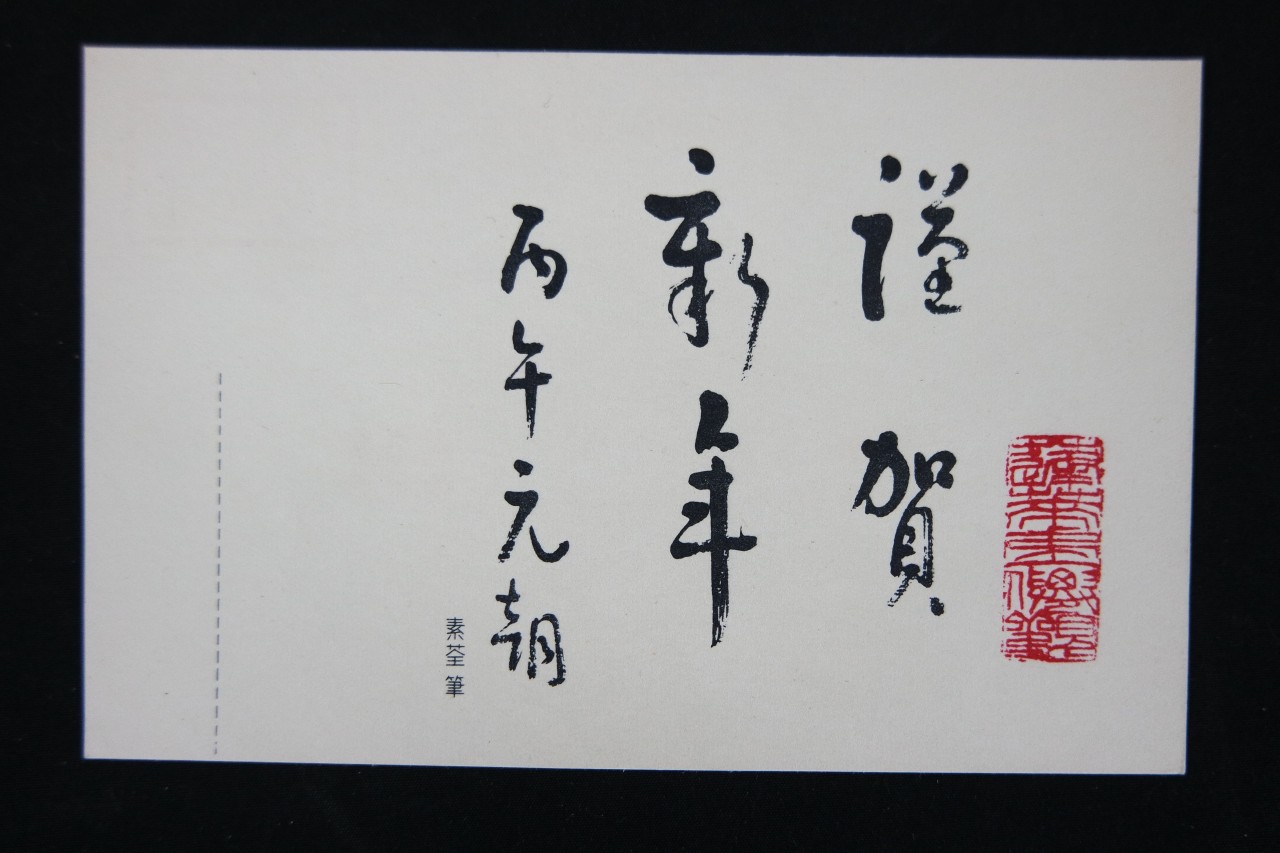 謹賀
新年
丙午元朝
素荃筆